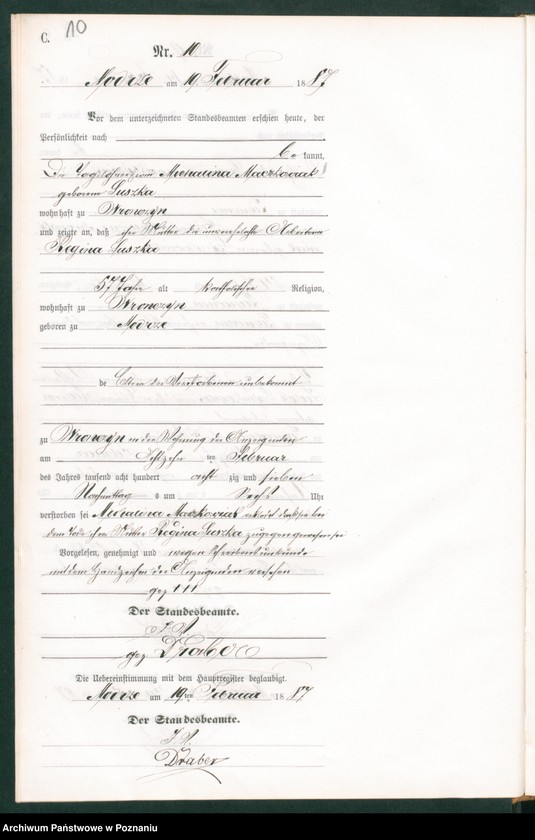 C. 10
Nr. 10
Modrze am 19 Februar 1887
Vor dem unterzeichneten Standesbeamten erschien heute, der
Persönlichkeit nach
be kannt,
Die Michalina Maćkowiak
geborene Luszka
wohnhaft zu Wronczyn
und zeigte an, daß ihre Mutter die unverehelichte Arbeiterin
Regina Luszka
57 Jahr alt katholischer Religion,
wohnhaft zu Wronczyn
geboren zu Modrze
die Eltern der Verstorbenen unbekannt
zu Wronczyn in der Wohnung der Anzeigenden
am achtzehn ten Februar
des Jahres tausend acht hundert acht zig und sieben
Nachmittag s um sechs Uhr
verstorben sei Michalina Maćkowiak erklärt daß sie bei
dem Tode ihrer Mutter Regina Luszka zugegen gewesen sei
Vorgelesen, genehmigt und wegen Schreibensunkunde
mit dem Handzeichen der Anzeigenden versehen
gez +++
Der Standesbeamte.
J. V.
gez Draber
Die Uebereinstimmung mit dem Hauptregister beglaubigt.
Modrze am 19ten Februar 1887
Der Standesbeamte.
J. V.
Draber
Archiwum Państwowe w Poznaniu